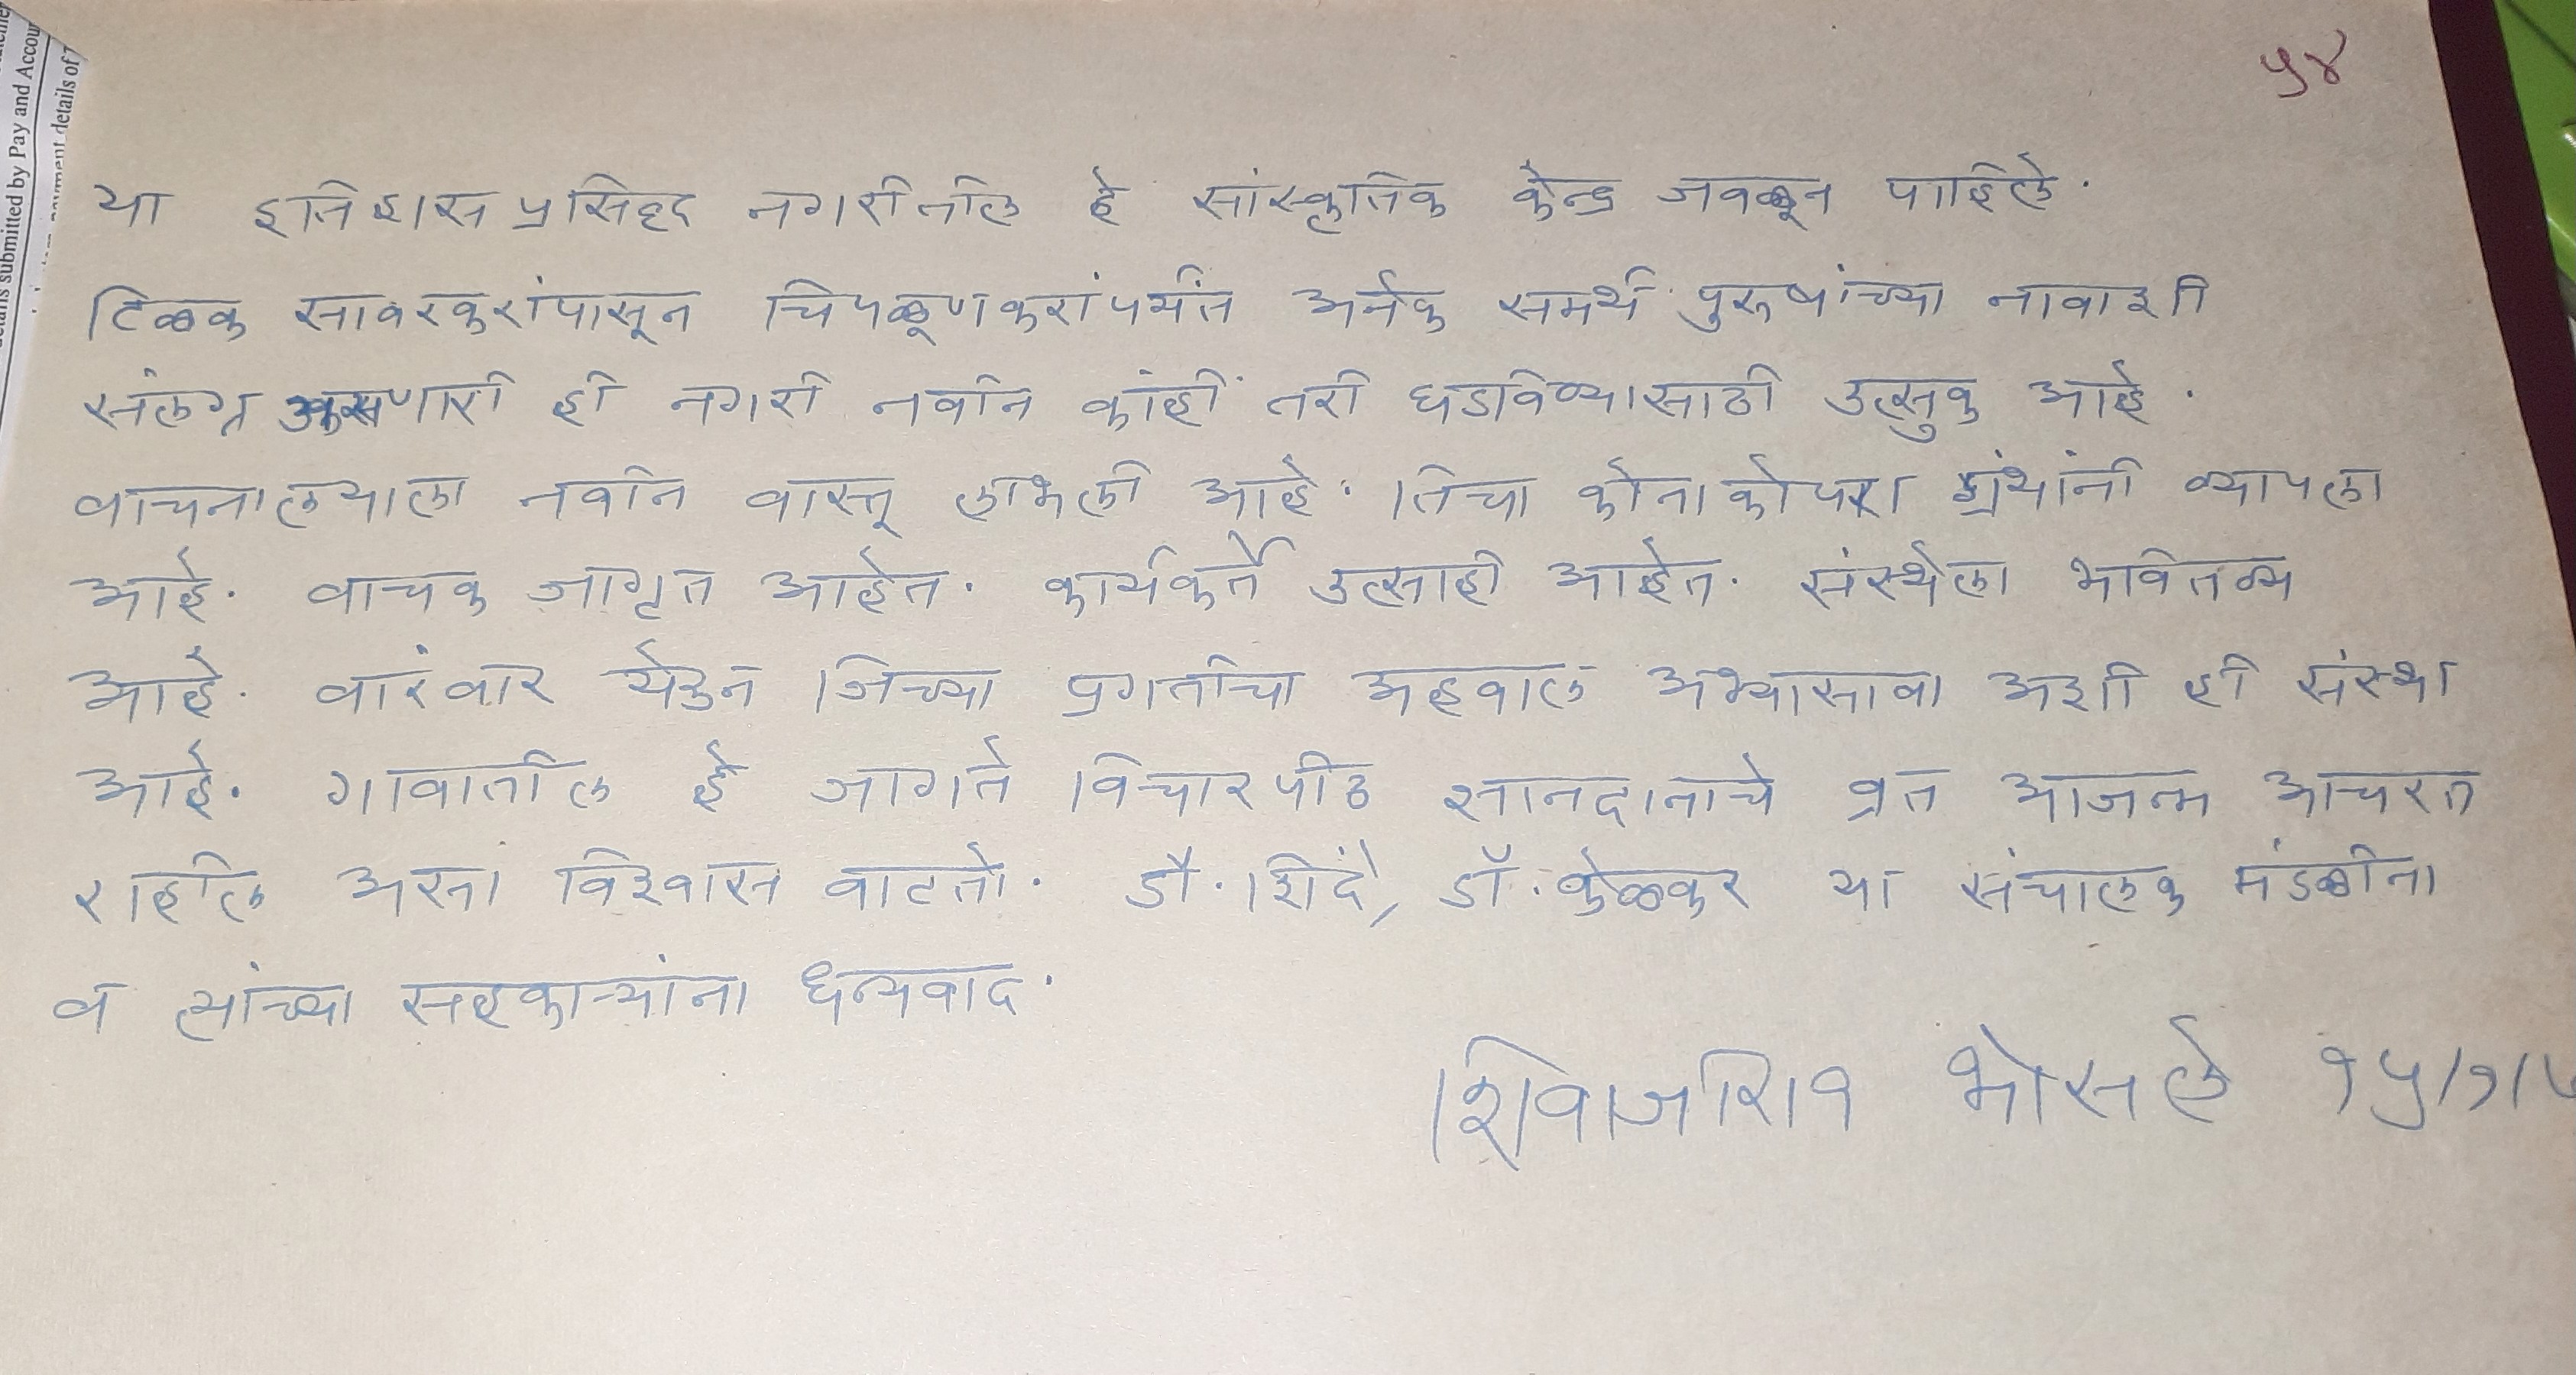 ५४
या इतिहास प्रसिद्ध नगरीतील हे सांस्कृतिक केन्द्र जवळून पाहिले.
टिळक सावरकरांपासून चिपळूणकरांपर्यंत अनेक समर्थ पुरुषांच्या नावाशी
संलग्न असणारी ही नगरी नवीन कांहीं तरी घडविण्यासाठी उत्सुक आहे.
वाचनालयाला नवीन वास्तू लाभली आहे. तिचा कोनाकोपरा ग्रंथांनी व्यापला
आहे. वाचक जागृत आहेत. कार्यकर्ते उत्साही आहेत. संस्थेला भवितव्य
आहे. वारंवार येउन जिच्या प्रगतीचा अहवाल अभ्यासावा अशी ही संस्था
आहे. गावातील हे जागते विचारपीठ ज्ञानदानाचे व्रत आजन्म आचरत
राहील असा विश्वास वाटतो. डॉ. शिंदे, डॉ. केळकर या संचालक मंडळींना
व त्यांच्या सहकाऱ्यांना धन्यवाद.
शिवाजीराव भोसले
details submitted by Pay and Accou
payment details of